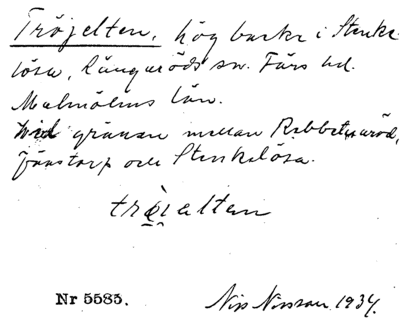 Tröjelten, hög backe i Stenke-
lösa, Långaröds sn. Färs hd.
Malmöhus län.
Vid gränsen mellan
Fänstorp och Stenkelösa.
Nr 5585.
Nils Nilsson 1934.